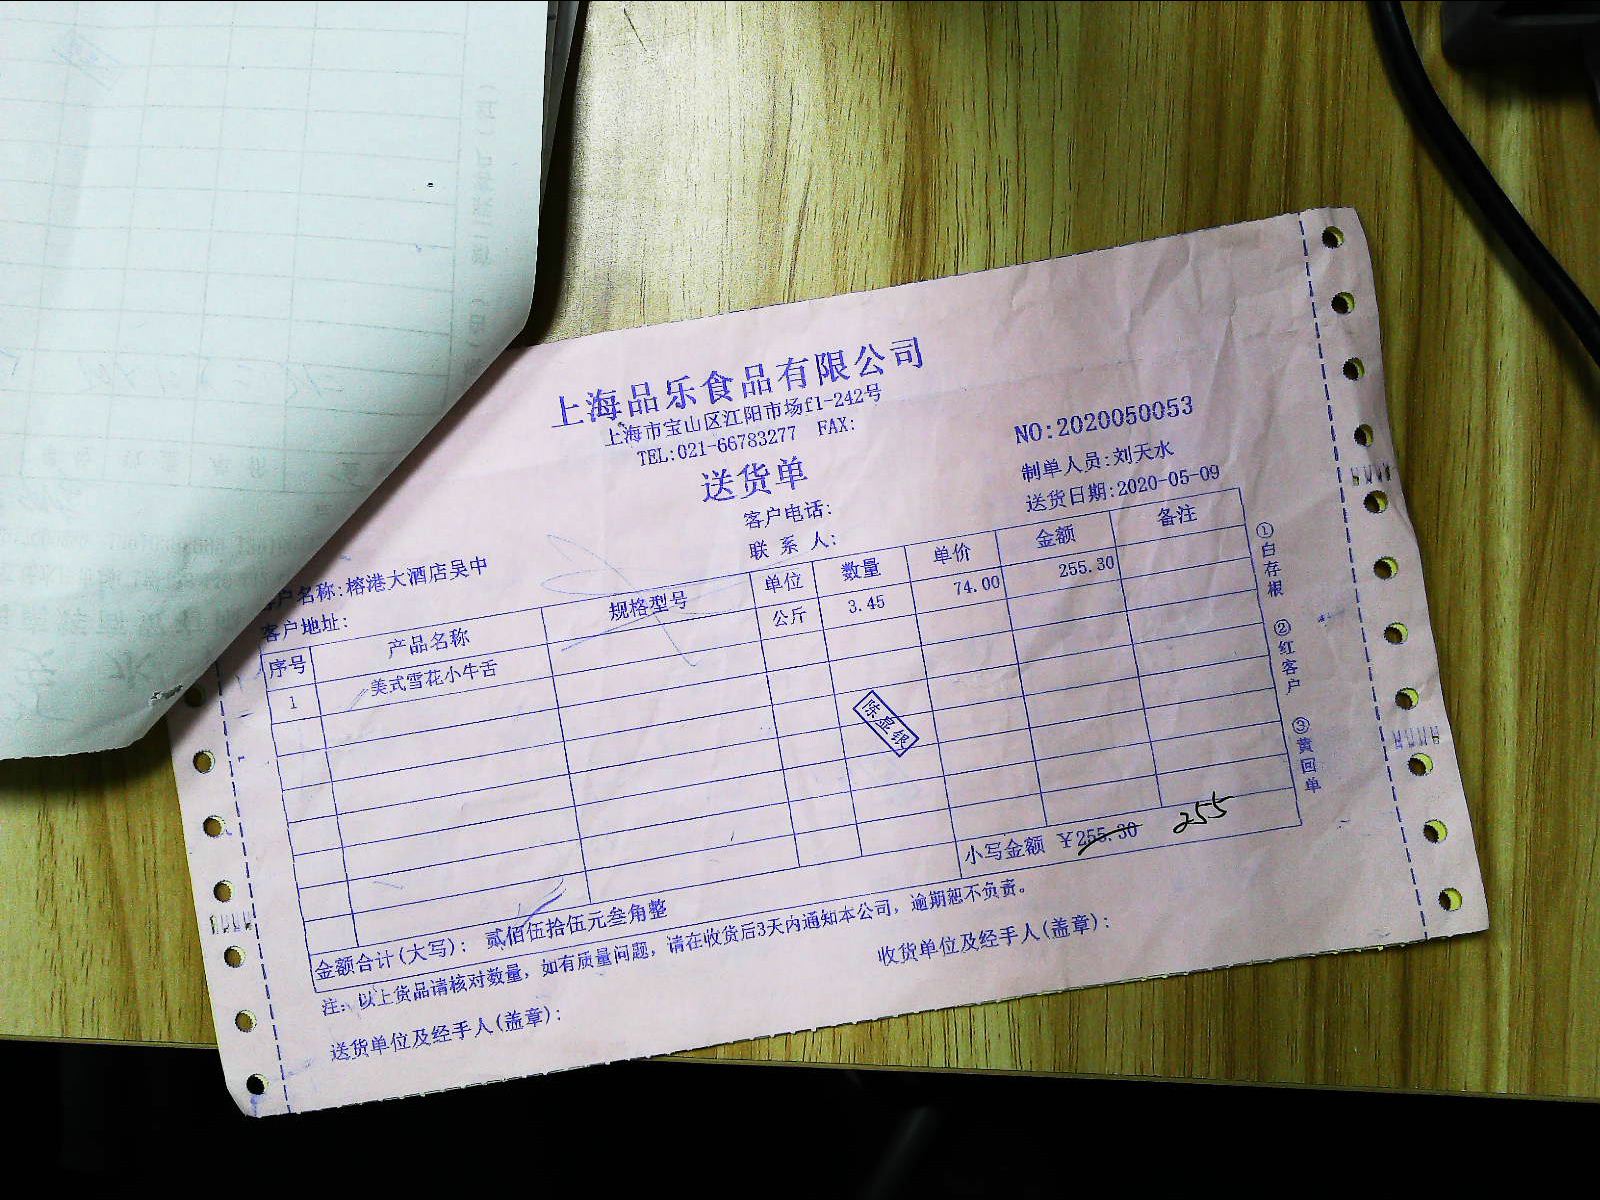 上海品乐食品有限公司
上海市宝山区江阳市场f1-242号
TEL:021-66783277 FAX:
NO:2020050053
送货单
制单人员:刘天水
客户电话:
送货日期:2020-05-09
户名称:榕港大酒店吴中
联 系 人:
客户地址:
序号 产品名称 规格型号 单位 数量 单价 金额 备注
1 美式雪花小牛舌 公斤 3.45 74.00 255.30
①白存根 ②红客户 ③黄回单
小写金额 ¥255.30 255
金额合计(大写): 贰佰伍拾伍元叁角整
注: 以上货品请核对数量, 如有质量问题, 请在收货后3天内通知本公司, 逾期恕不负责。
送货单位及经手人(盖章): 收货单位及经手人(盖章):